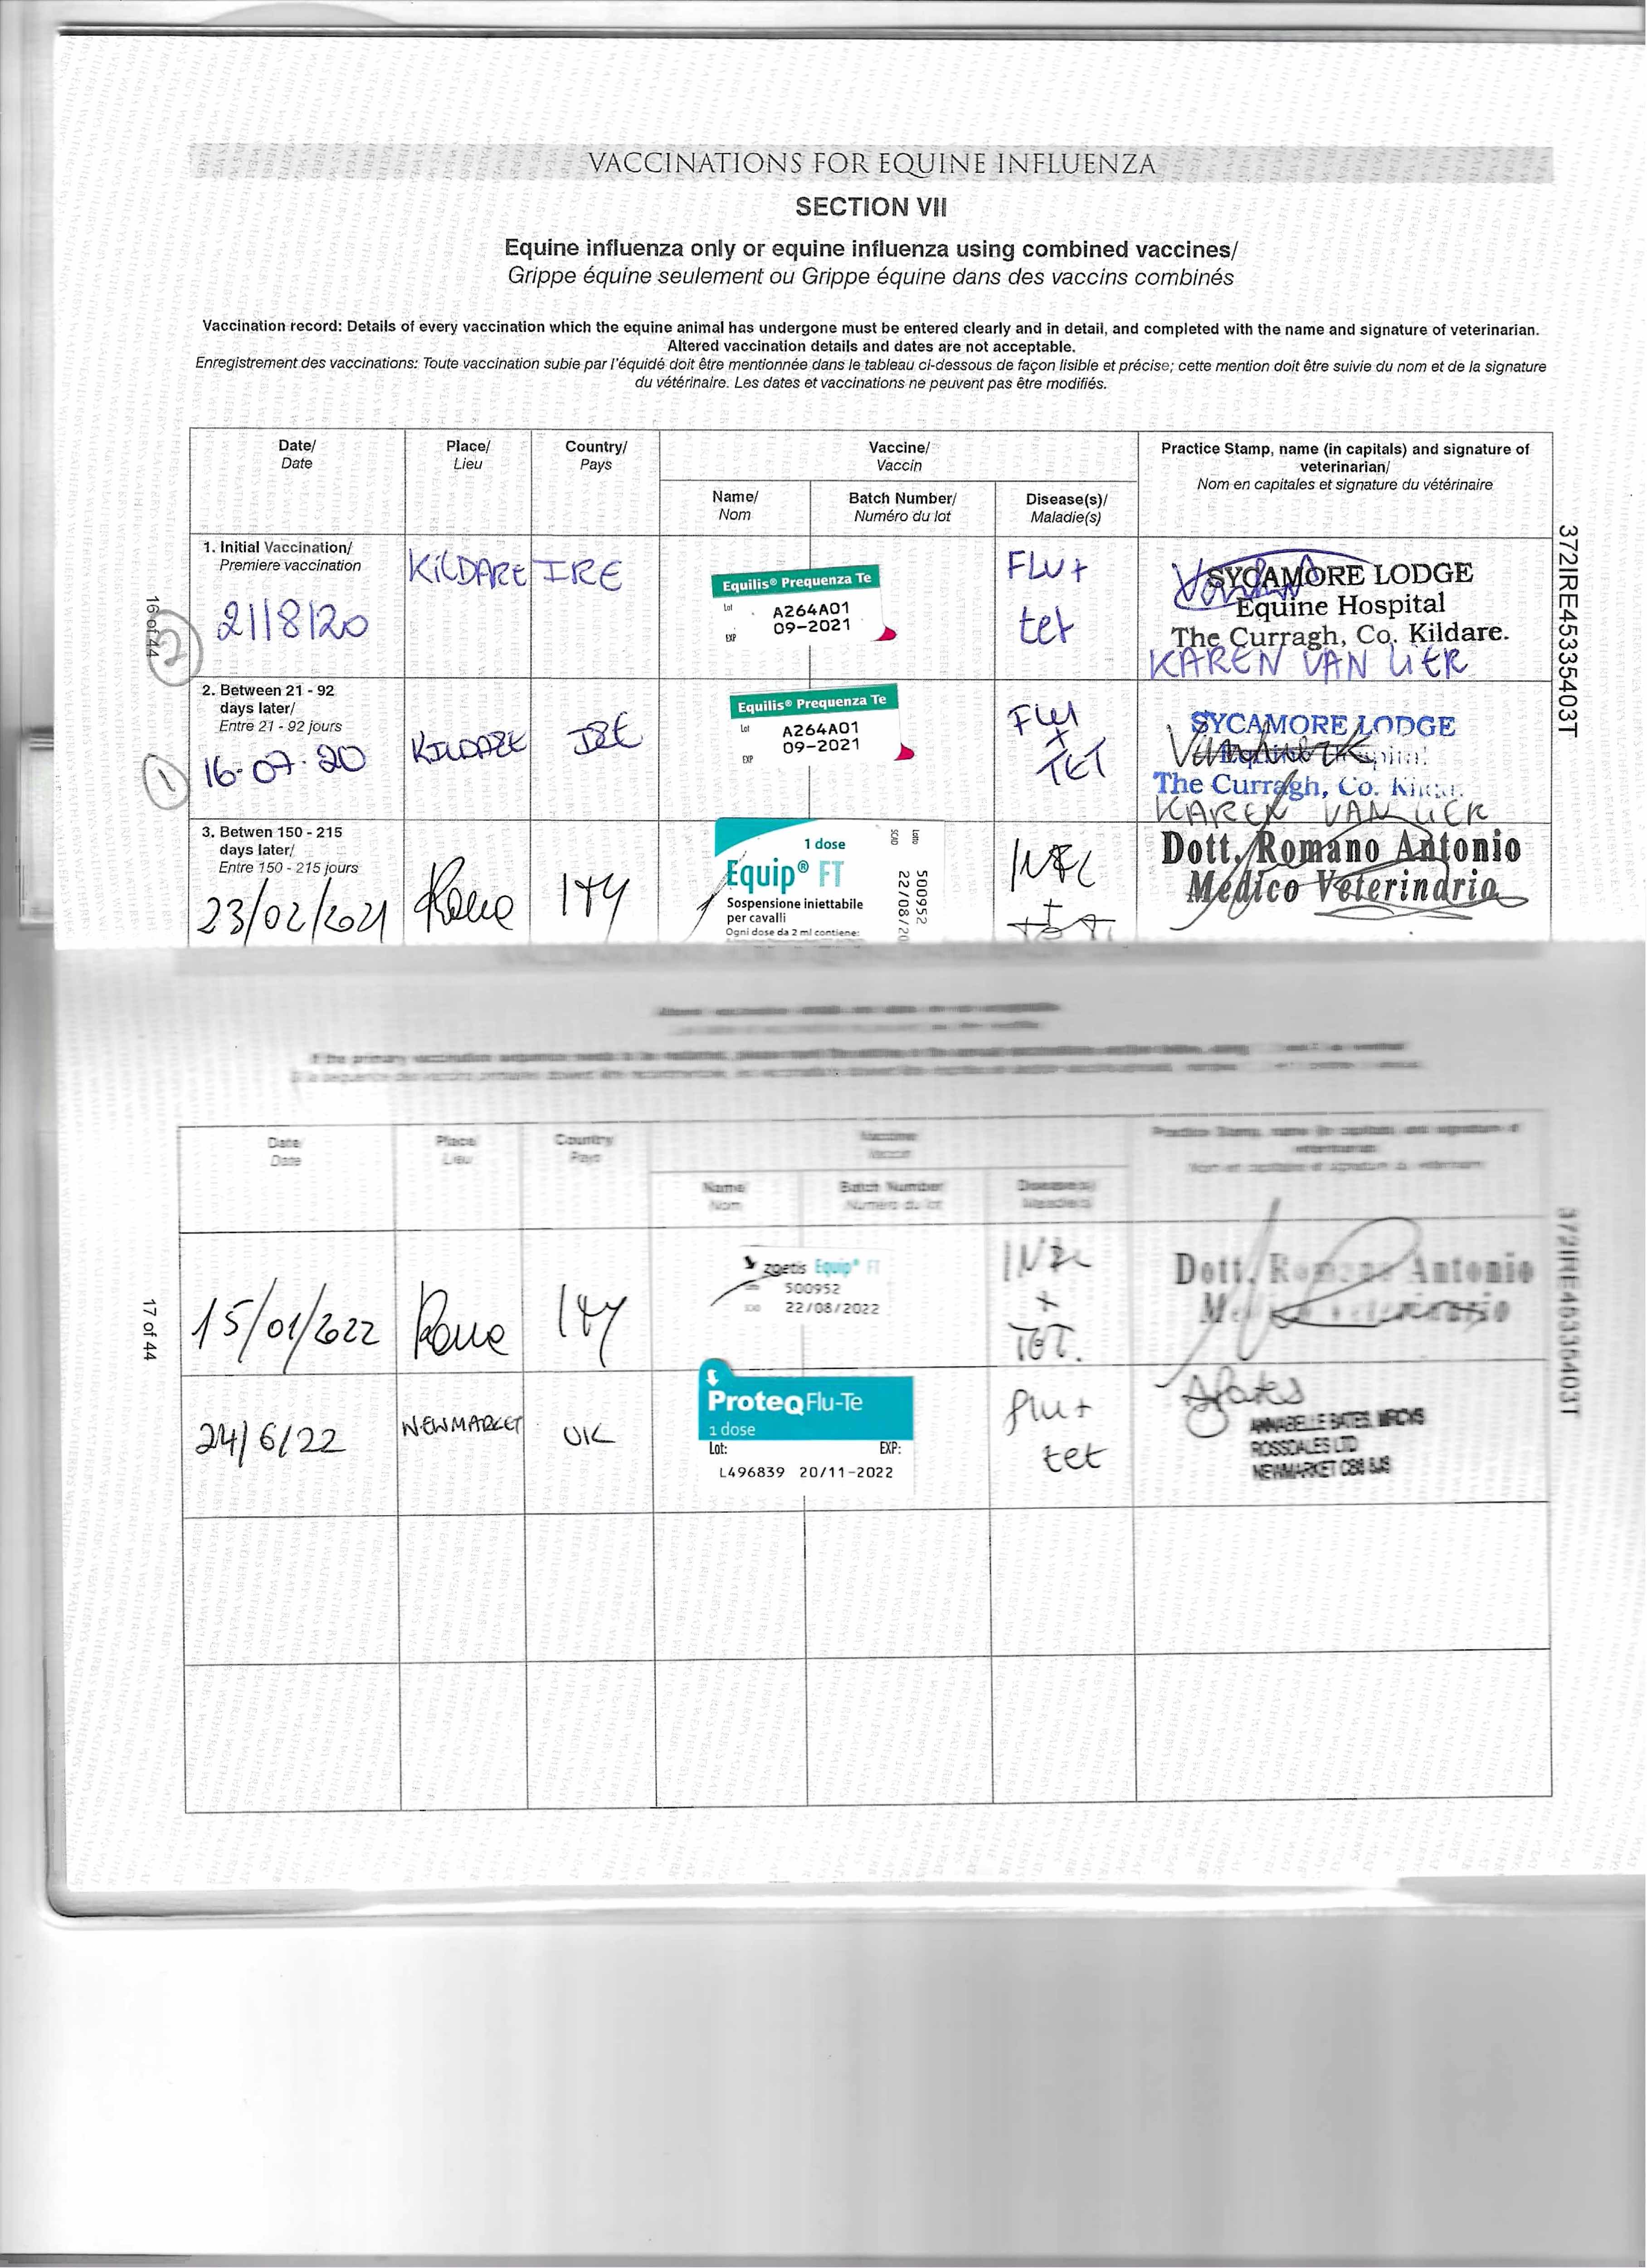 VACCINATIONS FOR EQUINE INFLUENZA
SECTION VII
Equine influenza only or equine influenza using combined vaccines/
Grippe équine seulement ou Grippe équine dans des vaccins combinés
Vaccination record: Details of every vaccination which the equine animal has undergone must be entered clearly and in detail, and completed with the name and signature of veterinarian.
Altered vaccination details and dates are not acceptable.
Enregistrement des vaccinations: Toute vaccination subie par l'équidé doit être mentionnée dans le tableau ci-dessous de façon lisible et précise; cette mention doit être suivie du nom et de la signature
du vétérinaire. Les dates et vaccinations ne peuvent pas être modifiés.
Date/
Date
Place/
Lieu
Country/
Pays
Vaccine/
Vaccin
Name/
Nom
Batch Number/
Numéro du lot
Disease(s)/
Maladie(s)
Practice Stamp, name (in capitals) and signature of
veterinarian/
Nom en capitales et signature du vétérinaire
1. Initial Vaccination/
Premiere vaccination
21/8/20
KILDARE
IRE
Equilis® Prequenza Te
Lot A264A01
EXP 09-2021
FLU +
tet
SYCAMORE LODGE
Equine Hospital
The Curragh, Co. Kildare.
KAREN VAN LIER
2
16 of 44
372IRE45335403T
2. Between 21 - 92
days later/
Entre 21 - 92 jours
16-07-20
1
KILDARE
IRE
Equilis® Prequenza Te
Lot A264A01
09-2021
EXP
Flu
+
TET
SYCAMORE LODGE
The Curragh, Co.
KAREN VAN LIER
3. Betwen 150 - 215
days later/
Entre 150 - 215 jours
23/02/2021
Rome
ITY
1 dose
Equip® FT
Sospensione iniettabile
per cavalli
Ogni dose da 2 ml contiene:
Lotto 500952
SCAD 22/08/20
INFL
Dott. Romano Antonio
Medico Veterinario
Date
Date
Place
Lieu
Country
Pays
Name
Nom
Batch Number
Numéro du lot
15/01/2022
Rome
ITY
zoetis Equip® FT
500952
22/08/2022
INFL
+
TET.
Dott. Romano Antonio
Medico Veterinario
17 of 44
24/6/22
NEWMARKET
UK
ProteqFlu-Te
1 dose
Lot: EXP:
L496839 20/11-2022
flu +
tet
ANNABELLE BATES, MRCVS
ROSSDALES LTD
NEWMARKET CB8 8JS